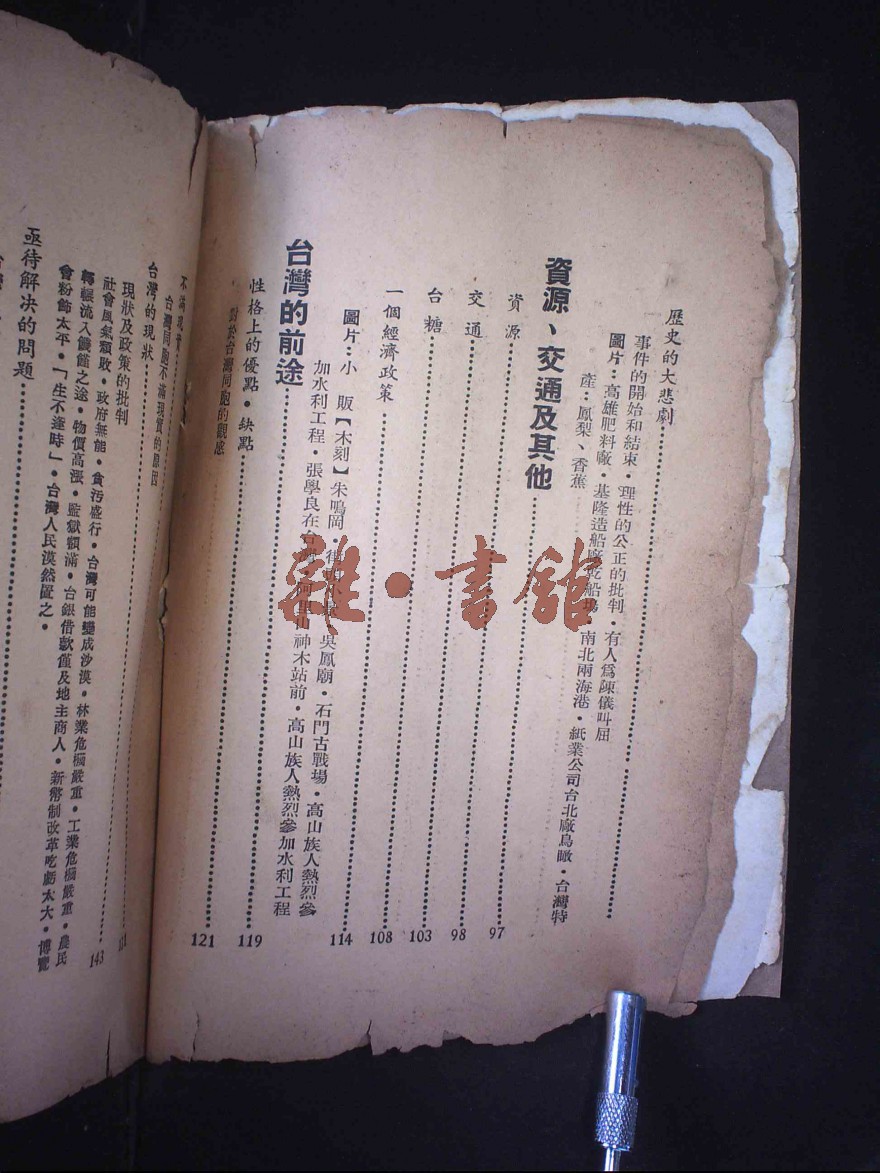 歷史的大悲劇
事件的開始和結束・理性的公正的批判・有人爲陳儀叫屈
圖片：高雄肥料廠・基隆造船廠乾船塢・南北兩海港・紙業公司台北廠鳥瞰・台灣特
產：鳳梨、香蕉
資源、交通及其他
資源 97
交通 98
台糖 103
一個經濟政策 108
圖片：小販【木刻】朱鳴岡・吳鳳廟・石門古戰場・高山族人熱烈參 114
加水利工程・張學良在台灣・阿里山神木站前・高山族人熱烈參加水利工程
台灣的前途
性格上的優點・缺點 119
對於台灣同胞的觀感 121
不滿現實
台灣同胞不滿現實的原因
台灣的現狀
現狀及政策的批判
社會風氣頹敗・政府無能・貪汚盛行・台灣可能變成沙漠・林業危機嚴重・工業危機嚴重・農民 143
輾轉流入饑饉之途・物價高漲・監獄額滿・台銀借款僅及地主商人・新幣制改革吃虧太大・博覽
會粉飾太平・「生不逢時」・台灣人民漠然置之・
亟待解決的問題
雜・書館